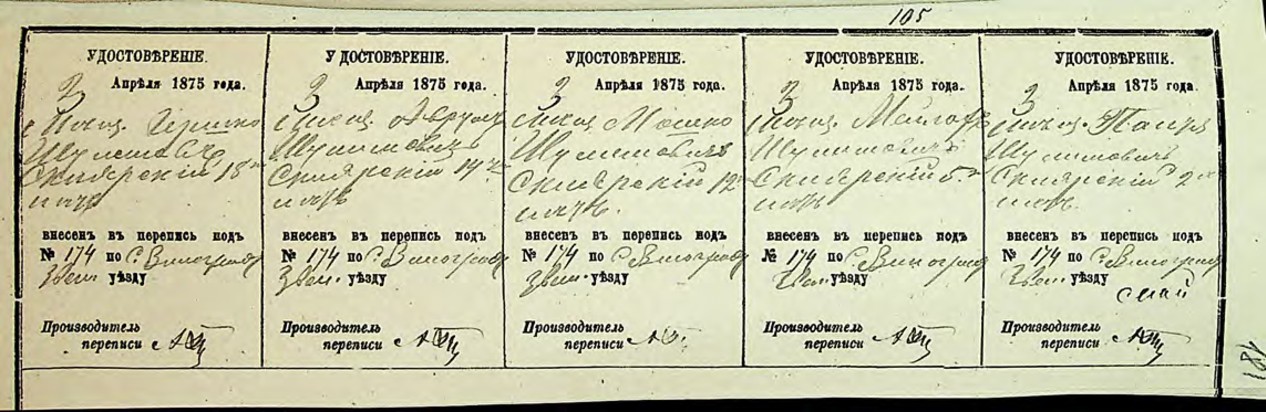 105
УДОСТОВѢРЕНІЕ.
3 Апрѣля 1875 года.
Мѣщ. Гершко
Шулимовичъ
Склярскій 18
лѣтъ
внесенъ въ перепись подъ
№ 174 по С. Виноград
Звен. уѣзду
Производитель
переписи
УДОСТОВѢРЕНІЕ.
3 Апрѣля 1875 года.
Мѣщ.
Шулимовичъ
Склярскій 14
лѣтъ
внесенъ въ перепись подъ
№ 174 по С. Виноград
Звен. уѣзду
Производитель
переписи
УДОСТОВѢРЕНІЕ.
3 Апрѣля 1875 года.
Мѣщ. Мошко
Шулимовичъ
Склярскій 12
лѣтъ.
внесенъ въ перепись подъ
№ 174 по С. Виноград
Звен. уѣзду
Производитель
переписи
УДОСТОВѢРЕНІЕ.
3 Апрѣля 1875 года.
Мѣщ.
Шулимовичъ
Склярскій 5
лѣтъ
внесенъ въ перепись подъ
№ 174 по С. Виноград
Звен. уѣзду
Производитель
переписи
УДОСТОВѢРЕНІЕ.
3 Апрѣля 1875 года.
Мѣщ.
Шулимовичъ
Склярскій 2
лѣтъ.
внесенъ въ перепись подъ
№ 174 по С. Виноград
Звен. уѣзду
Производитель
переписи